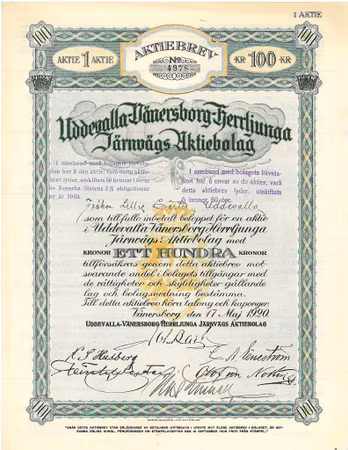 1 AKTIE
100
100
AKTIEBREV
AKTIE 1 AKTIE
No
4978
KR 100 KR
Uddevalla-Vänersborg-Herrljunga
Järnvägs Aktiebolag
I samband med bolagets likvida-
tion har å den aktie, varå detta aktie-
brev lyder, utskiftats 50 kronor i form
av Svenska Statens 3 % obligationer
av år 1940.
I samband med bolagets likvidation
har å envar av de aktier, varå
detta aktiebrev lyder, utskiftats
6 kronor 80 öre.
Fröken Uddevalla
som till fullo inbetalt beloppet för en aktie i
Uddevalla-Vänersborg-Herrljunga
Järnvägs-Aktiebolag med
KRONOR ETT HUNDRA KRONOR
tillförsäkras genom detta aktiebrev mot-
svarande andel i bolagets tillgångar med
de rättigheter och skyldigheter gällande
lag och bolagsordning bestämma.
Till detta aktiebrev höra talong och kuponger.
Vänersborg den 17 Maj 1920.
UDDEVALLA-VÄNERSBORG-HERRLJUNGA JÄRNVÄGS AKTIEBOLAG
100
100